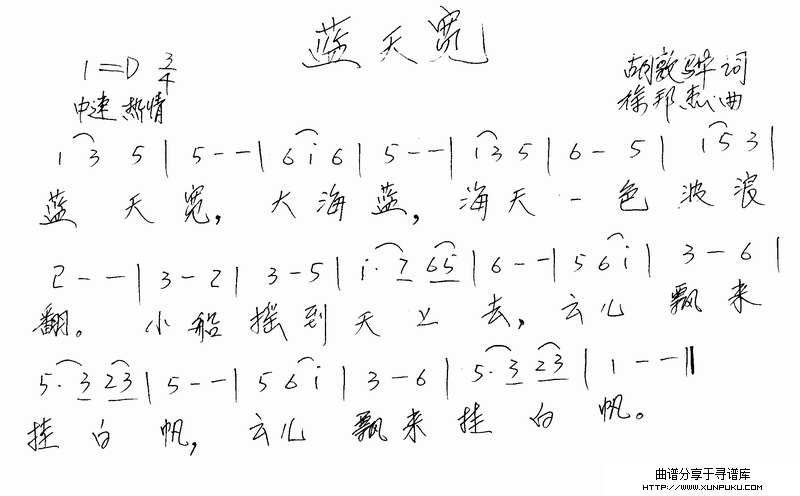 蓝天宽
1=D 3/4
胡敦骅词
中速 热情
徐邦杰曲
1 3 5 | 5 - - | 6 i 6 | 5 - - | i 3 5 | 6 - 5 | i 5 3 |
蓝 天 宽, 大 海 蓝, 海 天 一 色 波 浪
2 - - | 3 - 2 | 3 - 5 | i· 7 65 | 6 - - | 5 6 i | 3 - 6 |
翻。 小 船 摇 到 天 上 去, 云 儿 飘 来
5· 3 23 | 5 - - | 5 6 i | 3 - 6 | 5· 3 23 | 1 - - ||
挂 白 帆, 云 儿 飘 来 挂 白 帆。
曲谱分享于寻谱库
HTTP://WWW.XUNPUKU.COM